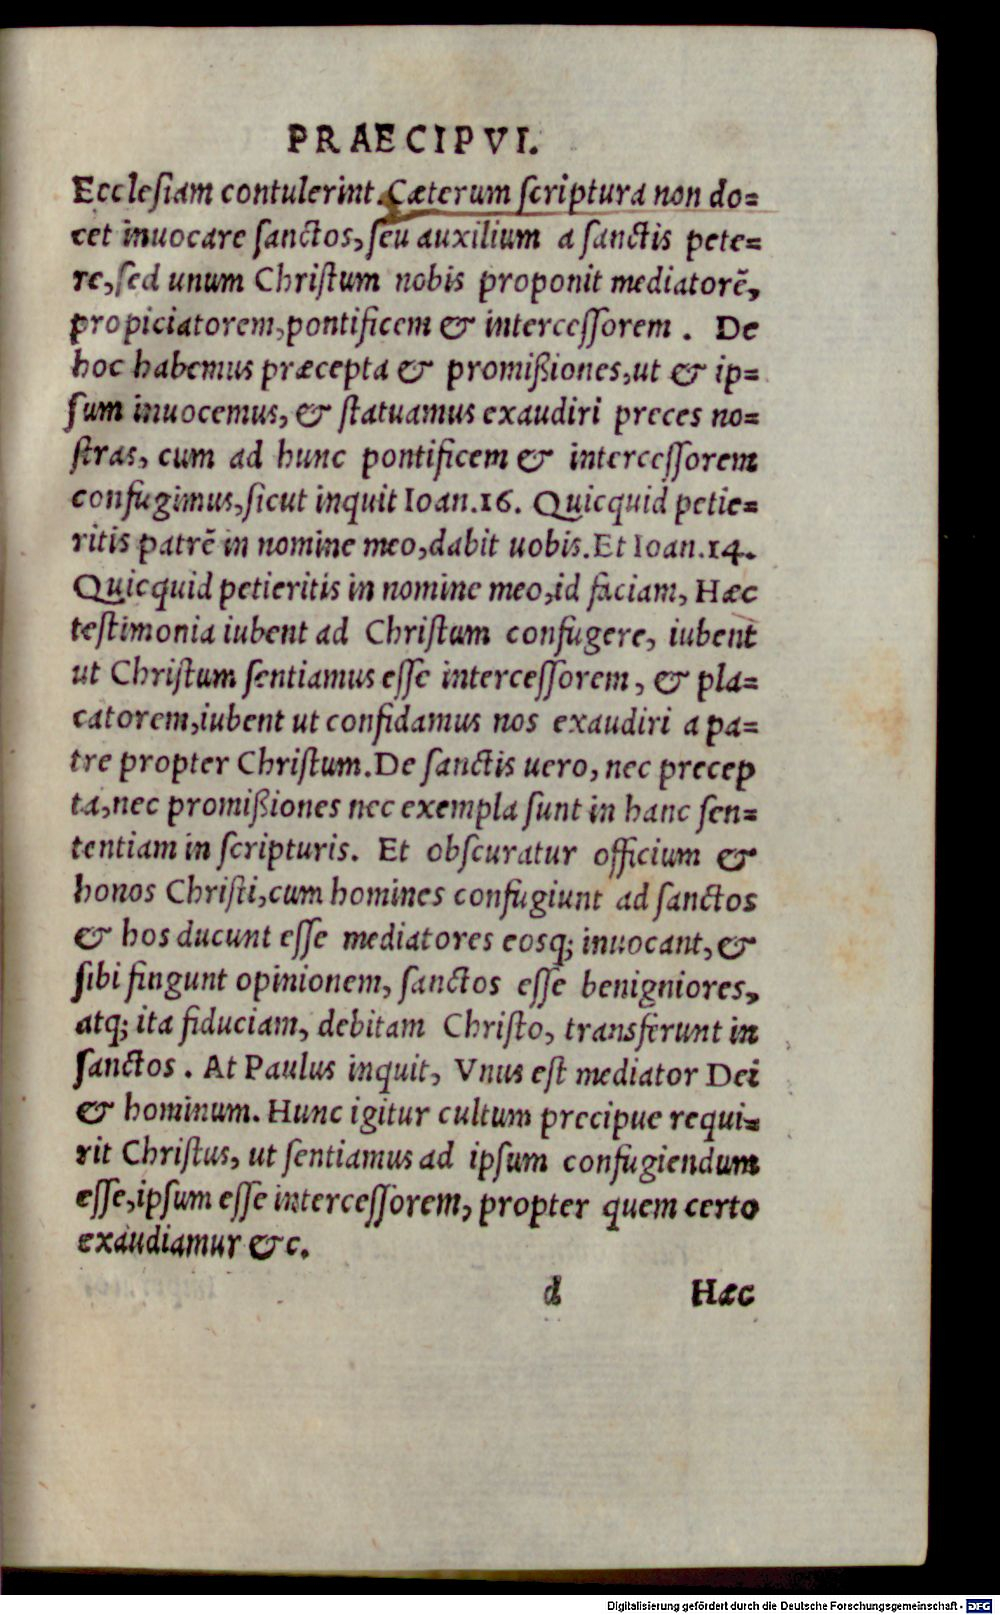 PRAECIPVI.
Ecclesiam contulerint. Cæterum scriptura non do=
cet inuocare sanctos, seu auxilium a sanctis pete=
re, sed unum Christum nobis proponit mediatorē,
propiciatorem, pontificem & intercessorem. De
hoc habemus præcepta & promißiones, ut & ip=
sum inuocemus, & statuamus exaudiri preces no=
stras, cum ad hunc pontificem & intercessorem
confugimus, sicut inquit Ioan.16. Quicquid petie=
ritis patrē in nomine meo, dabit uobis. Et Ioan.14.
Quicquid petieritis in nomine meo, id faciam, Hæc
testimonia iubent ad Christum confugere, iubent
ut Christum sentiamus esse intercessorem, & pla=
catorem, iubent ut confidamus nos exaudiri a pa=
tre propter Christum. De sanctis uero, nec precep
ta, nec promißiones nec exempla sunt in hanc sen=
tentiam in scripturis. Et obscuratur officium &
honos Christi, cum homines confugiunt ad sanctos
& hos ducunt esse mediatores eosq; inuocant, &
sibi fingunt opinionem, sanctos esse benigniores,
atq; ita fiduciam, debitam Christo, transferunt in
sanctos. At Paulus inquit, Vnus est mediator Dei
& hominum. Hunc igitur cultum precipue requi=
rit Christus, ut sentiamus ad ipsum confugiendum
esse, ipsum esse intercessorem, propter quem certo
exaudiamur &c.
d Hæc
Digitalisierung gefördert durch die Deutsche Forschungsgemeinschaft - DFG